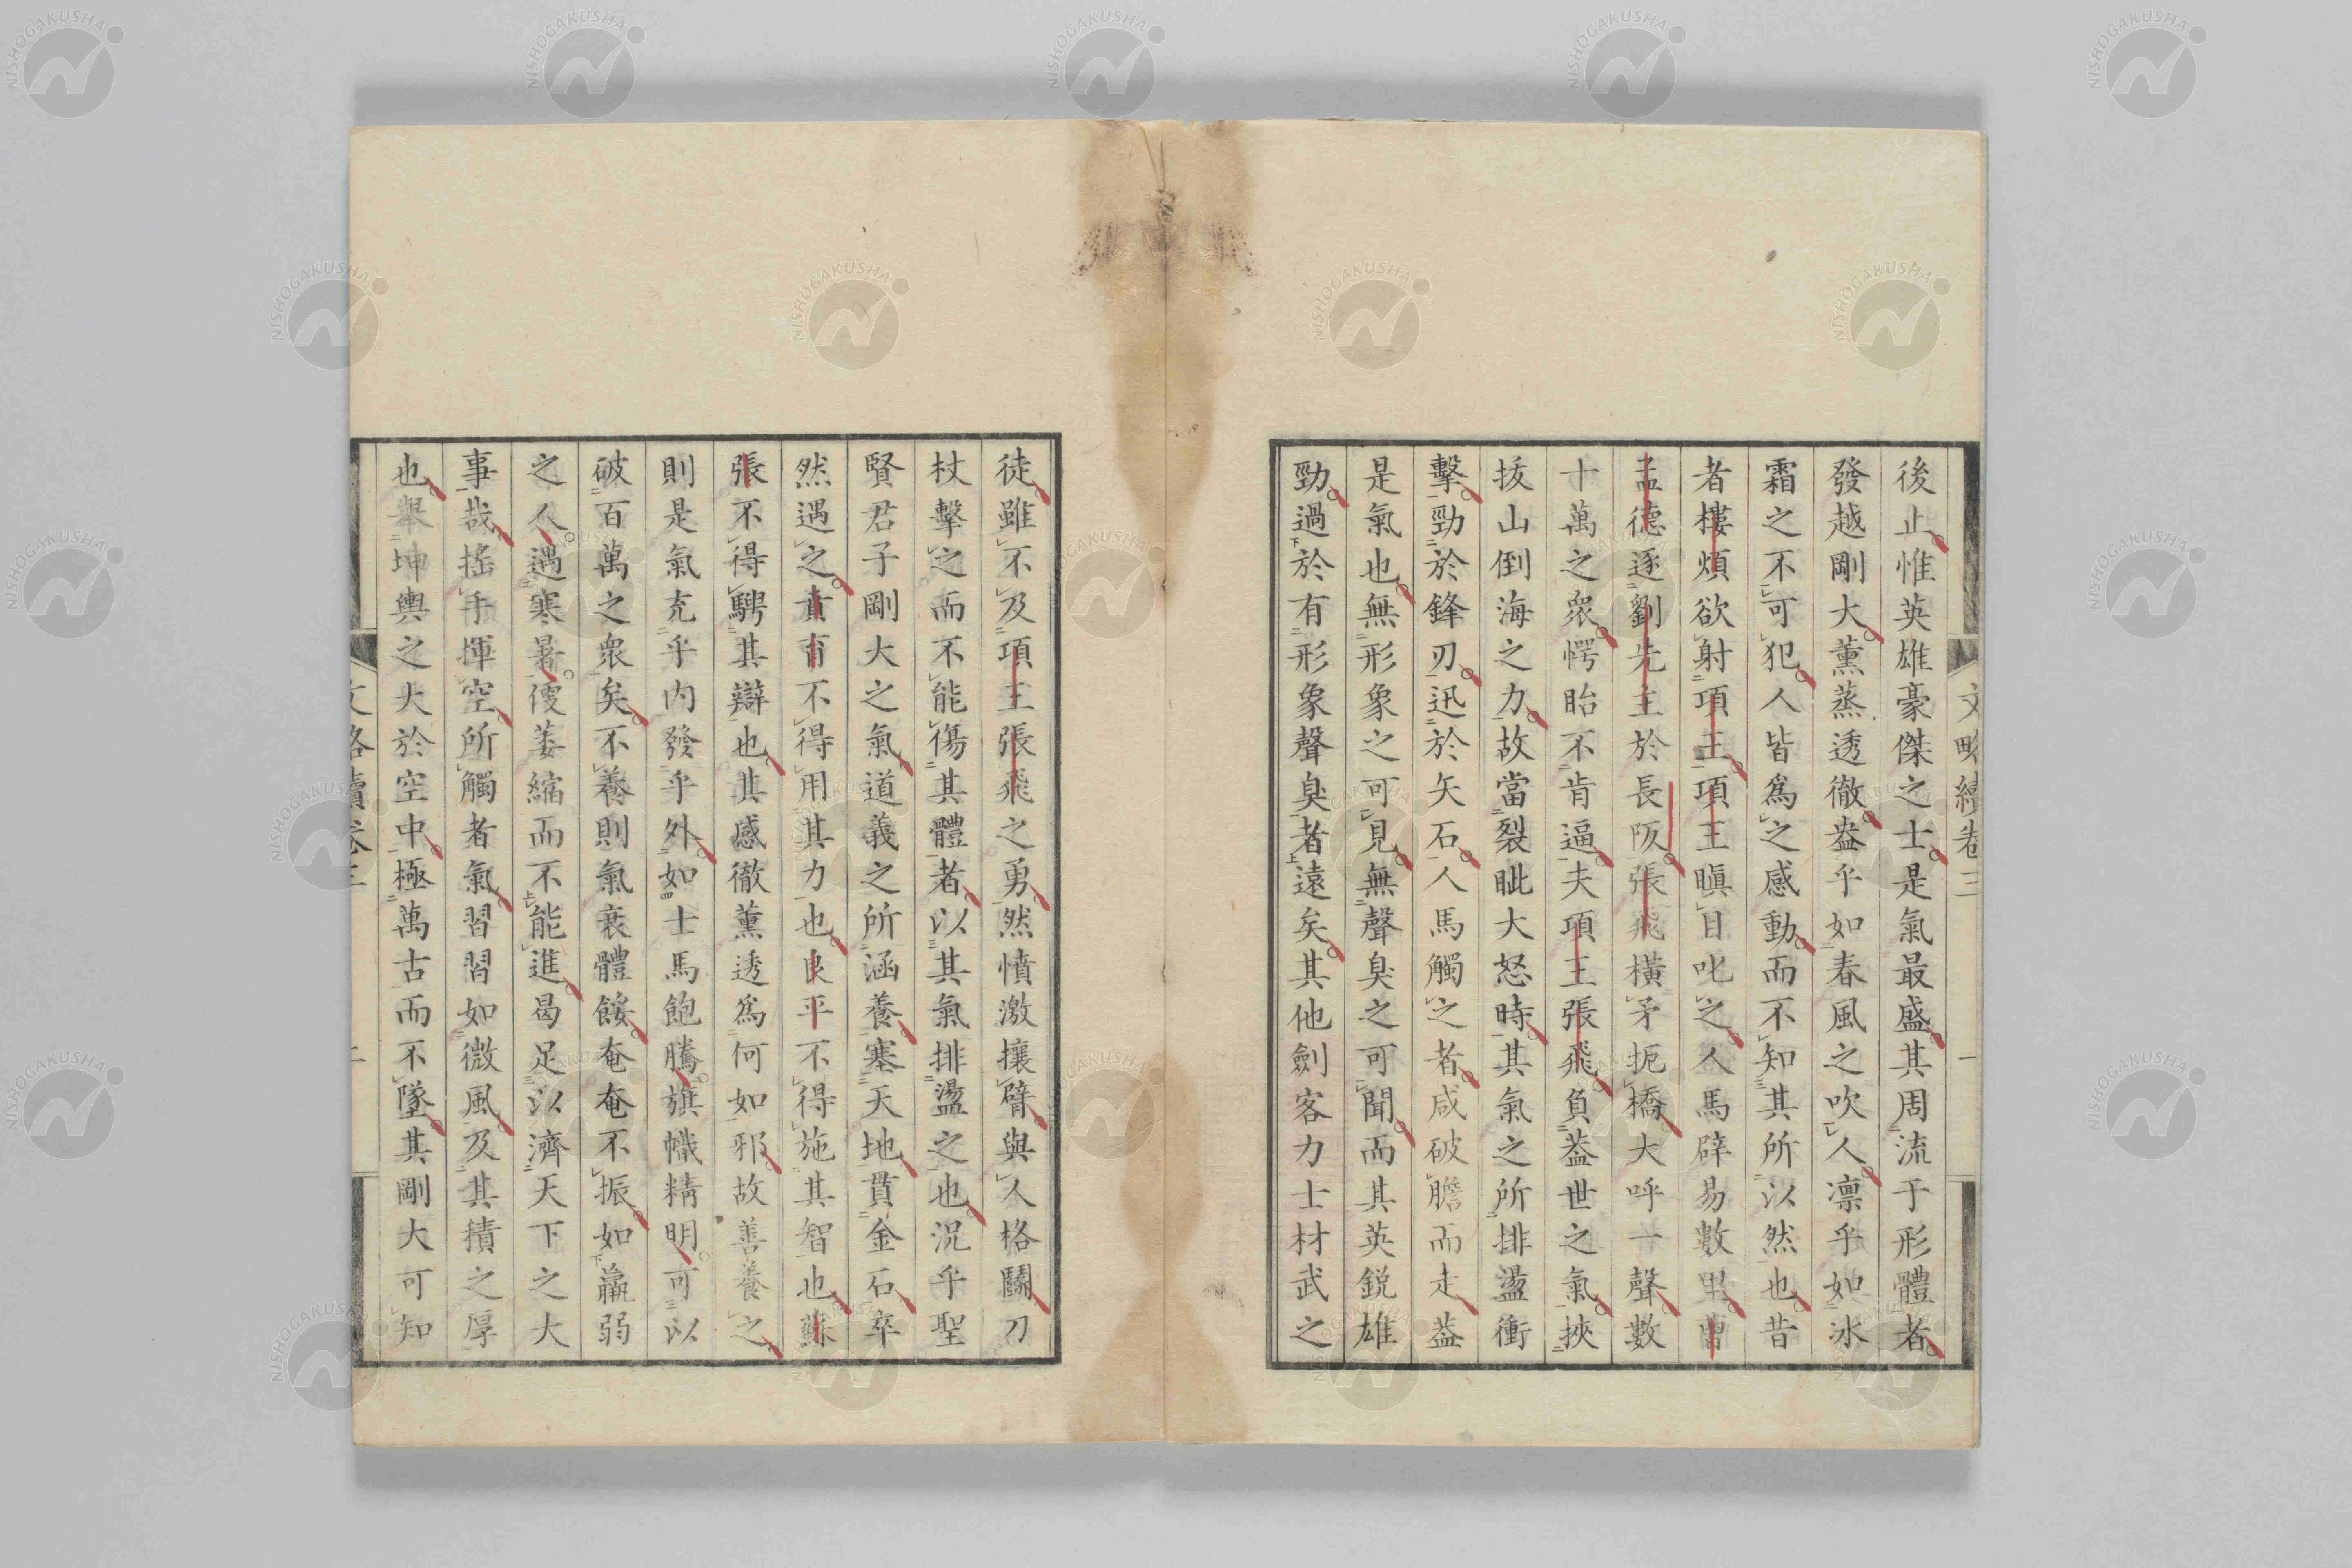 文略續卷三
一
後止惟英雄豪傑之士是氣最盛其周流于形體者
發越剛大薰蒸透徹盎乎如春風之吹人凛乎如冰
霜之不可犯人皆爲之感動而不知其所以然也昔
者樓煩欲射項王項王瞋目叱之人馬辟易數里曹
孟德逐劉先主於長阪張飛橫矛扼橋大呼一聲數
十萬之眾愕眙不肯逼夫項王張飛負葢世之氣挾
拔山倒海之力故當裂眦大怒時其氣之所排盪衝
擊勁於鋒刃迅於矢石人馬觸之者咸破膽而走葢
是氣也無形象之可見無聲臭之可聞而其英銳雄
勁過於有形象聲臭者遠矣其他劍客力士材武之
徒雖不及項王張飛之勇然憤激攘臂與人格鬭刀
杖擊之而不能傷其體者以其氣排盪之也況乎聖
賢君子剛大之氣道義之所涵養塞天地貫金石卒
然遇之賁育不得用其力也良平不得施其智也蘇
張不得騁其辯也其感徹薰透爲何如邪故善養之
則是氣充乎內發乎外如士馬飽騰旗幟精明可以
破百萬之眾矣不養則氣衰體餒奄奄不振如羸弱
之人遇寒暑便萎縮而不能進曷足以濟天下之大
事哉搖手揮空所觸者氣習習如微風及其積之厚
也舉坤輿之大於空中極萬古而不墜其剛大可知
文略續卷三
NISHOGAKUSHA